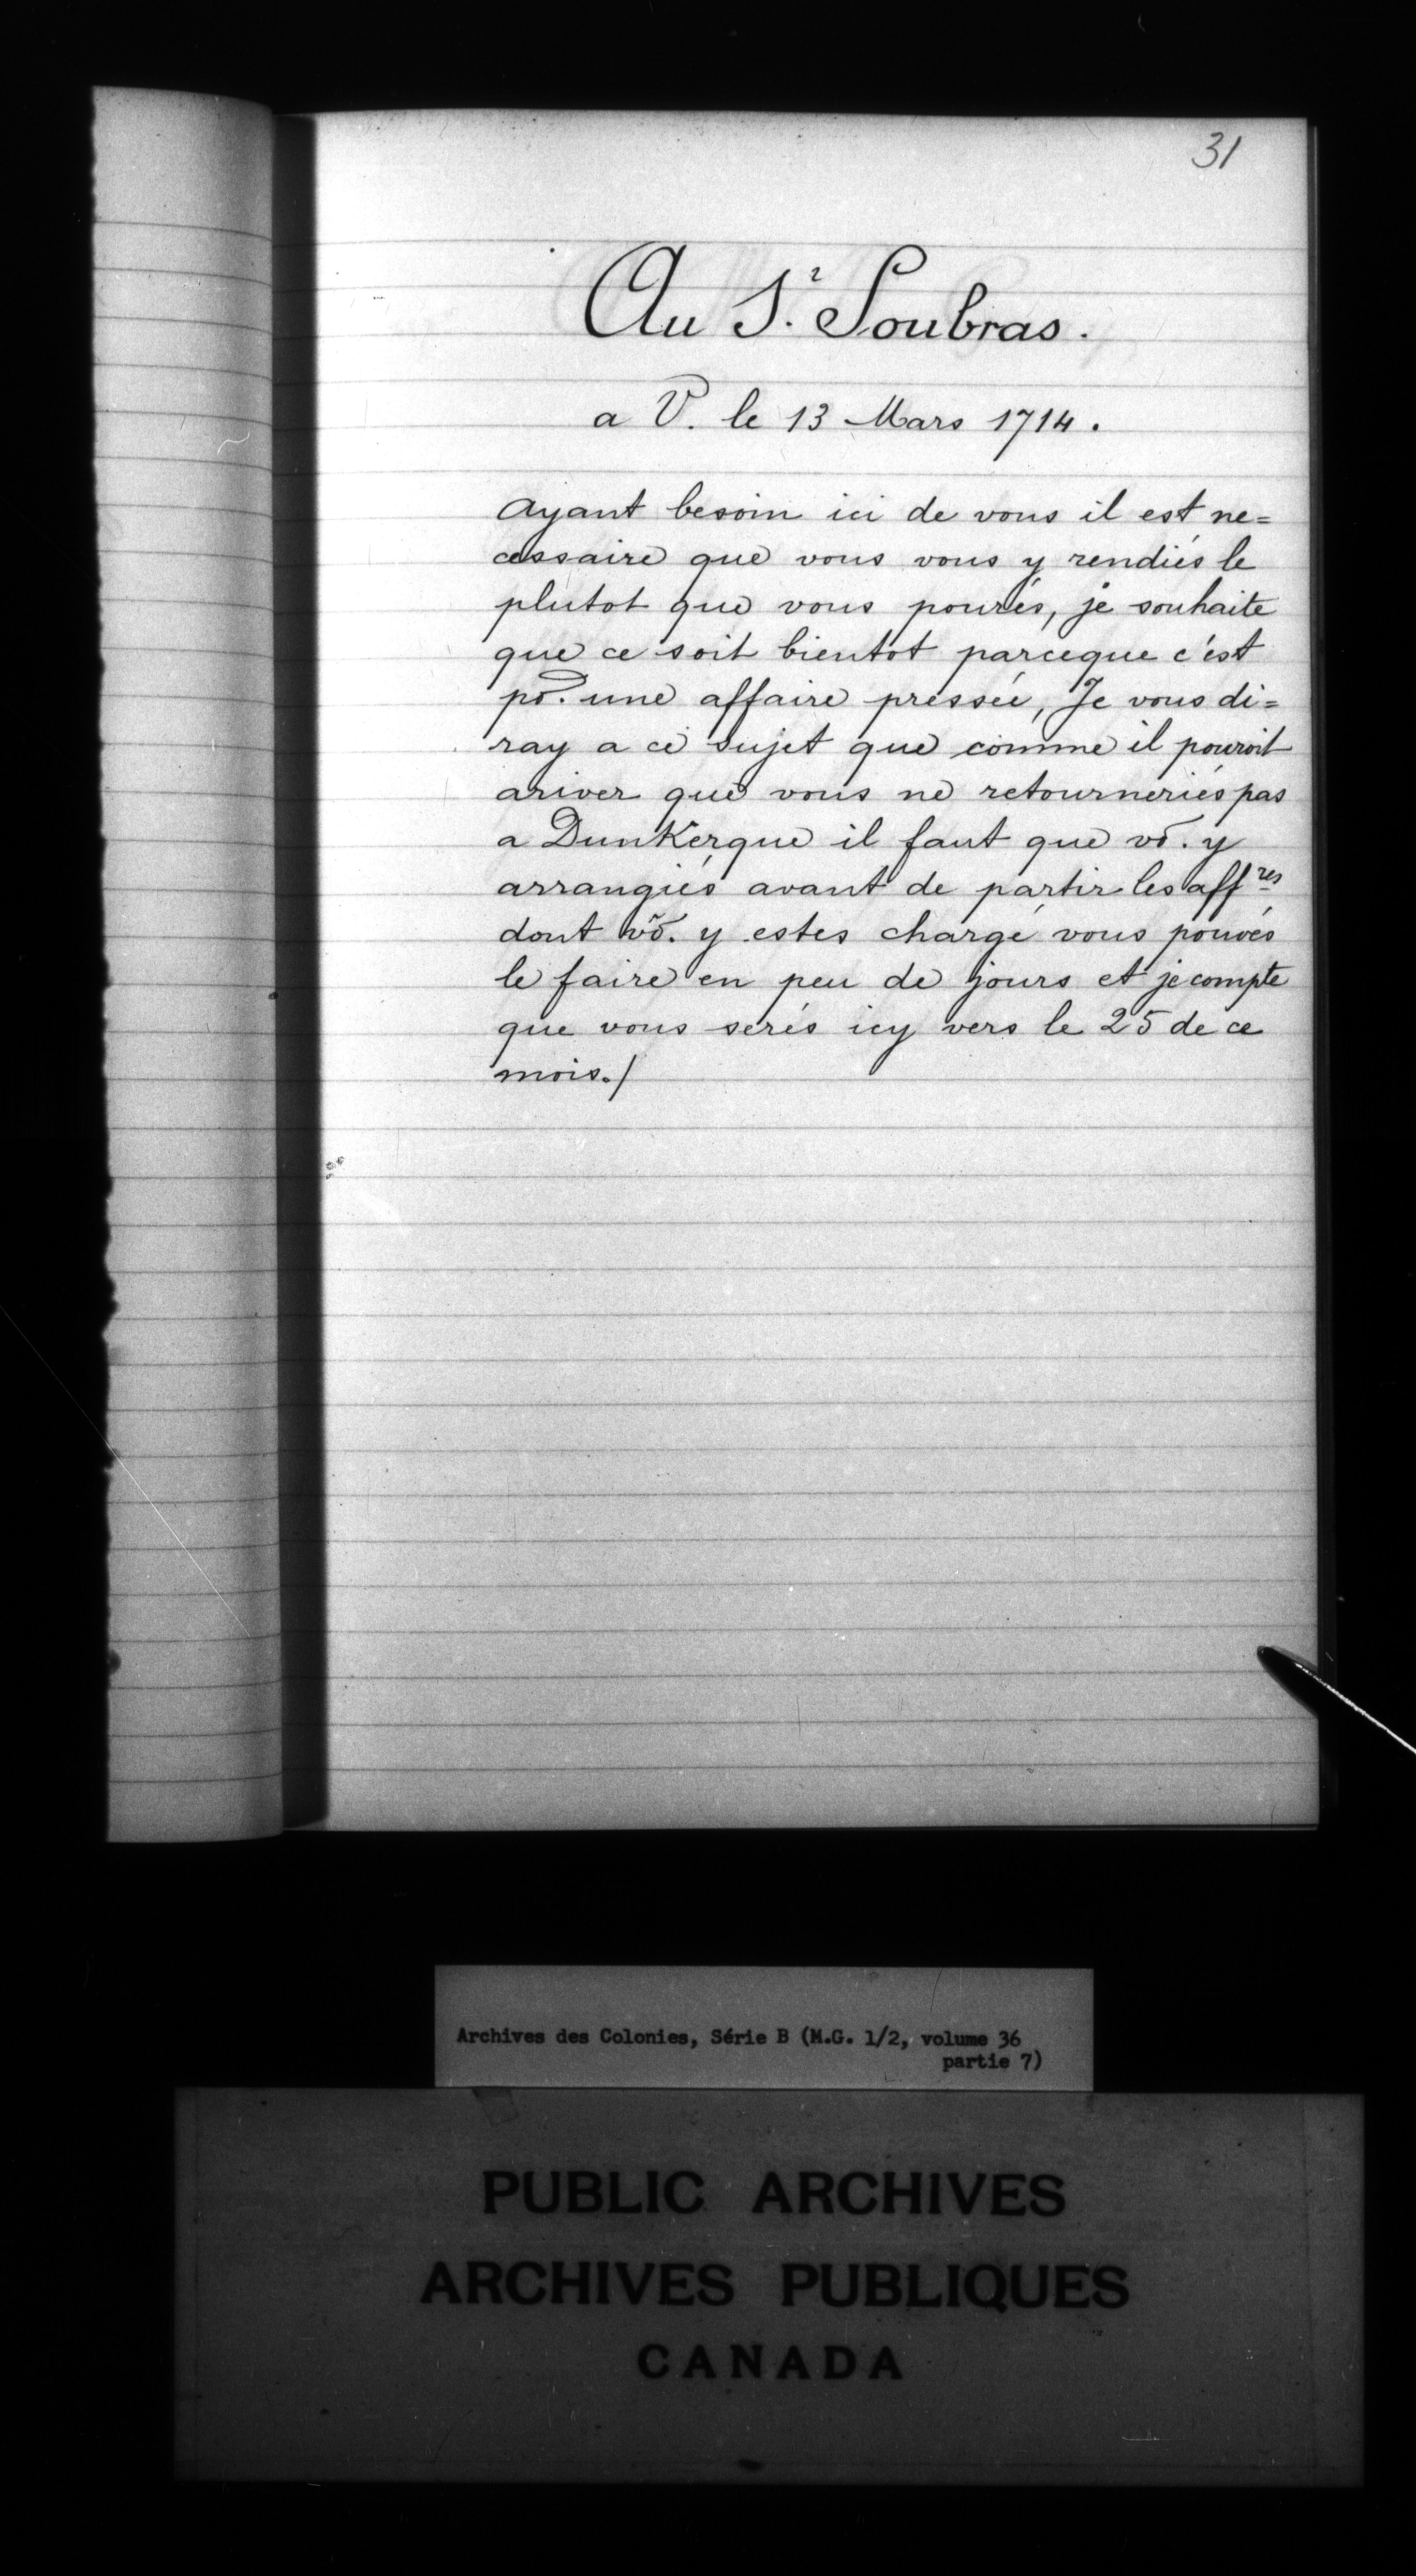 31
Au S.r Soubras.
a V. le 13 Mars 1714.
Ayant besoin ici de vous il est ne=
cessaire que vous vous y rendiés le
plutot que vous pourés, je souhaite
que ce soit bientot parceque c'est
pō. une affaire pressée, Je vous di=
ray a ce sujet que comme il pouroit
ariver que vous ne retourneriés pas
a DunKerque il faut que vō. y
arrangiés avant de partir les affres
dont vō. y estes chargé, vous pouvés
le faire en peu de jours et je compte
que vous serés icy vers le 25 de ce
mois./
Archives des Colonies, Série B (M.G. 1/2, volume 36
partie 7)
PUBLIC ARCHIVES
ARCHIVES PUBLIQUES
CANADA